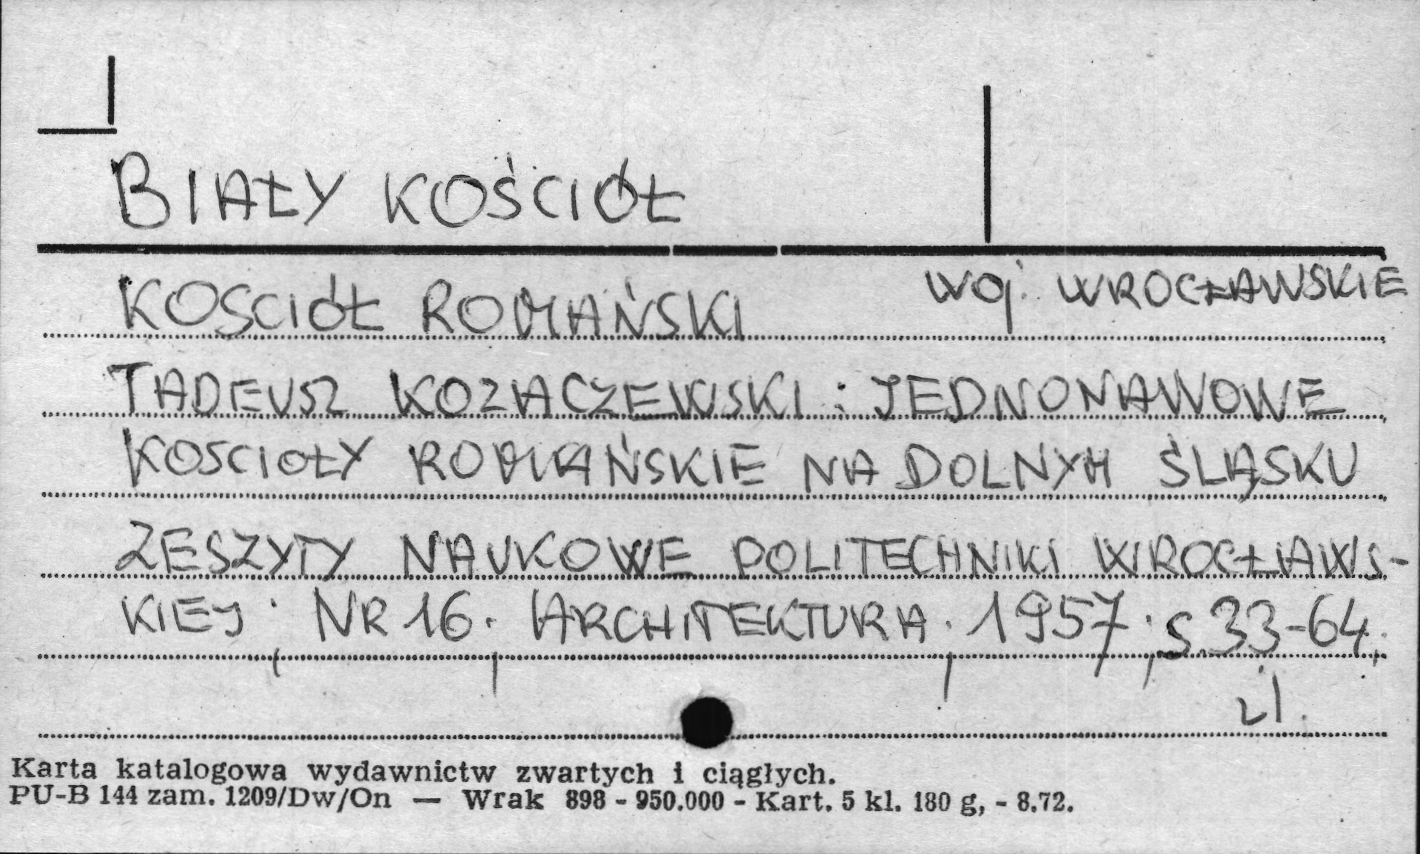 BIAŁY KOŚCIÓŁ
KOSCIÓŁ ROMAŃSKI woj. WROCŁAWSKIE
TADEUSZ KOZACZEWSKI : JEDNONAWOWE
KOSCIOŁY ROMAŃSKIE NA DOLNYM ŚLĄSKU
ZESZYTY NAUKOWE POLITECHNIKI WROCŁAWS-
KIEJ. NR 16. ARCHITEKTURA. 1957. S. 33-64.
il.
Karta katalogowa wydawnictw zwartych i ciągłych.
PU-B 144 zam. 1209/Dw/On — Wrak 898 - 950.000 - Kart. 5 kl. 180 g, - 8.72.